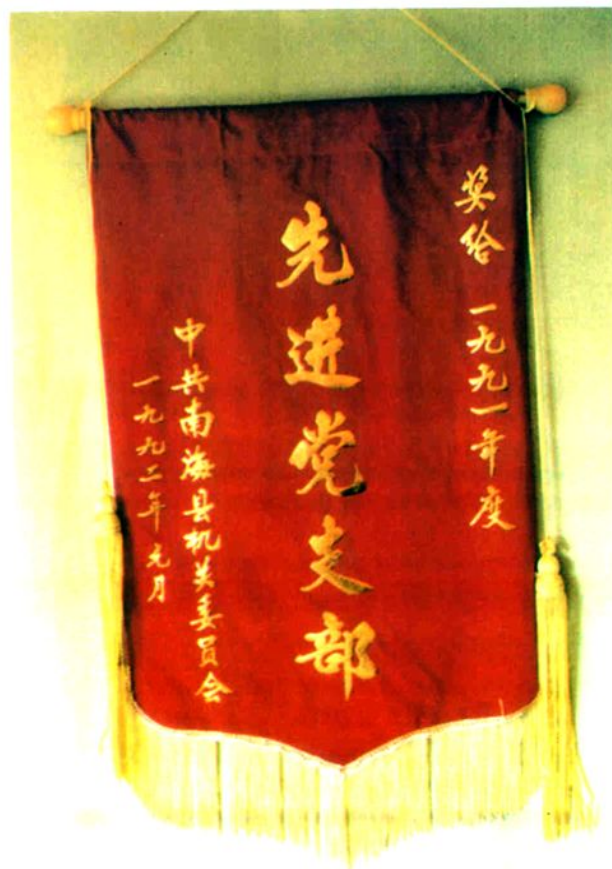 奖给 一九九一年度
先进党支部
中共南海县机关委员会
一九九二年元月